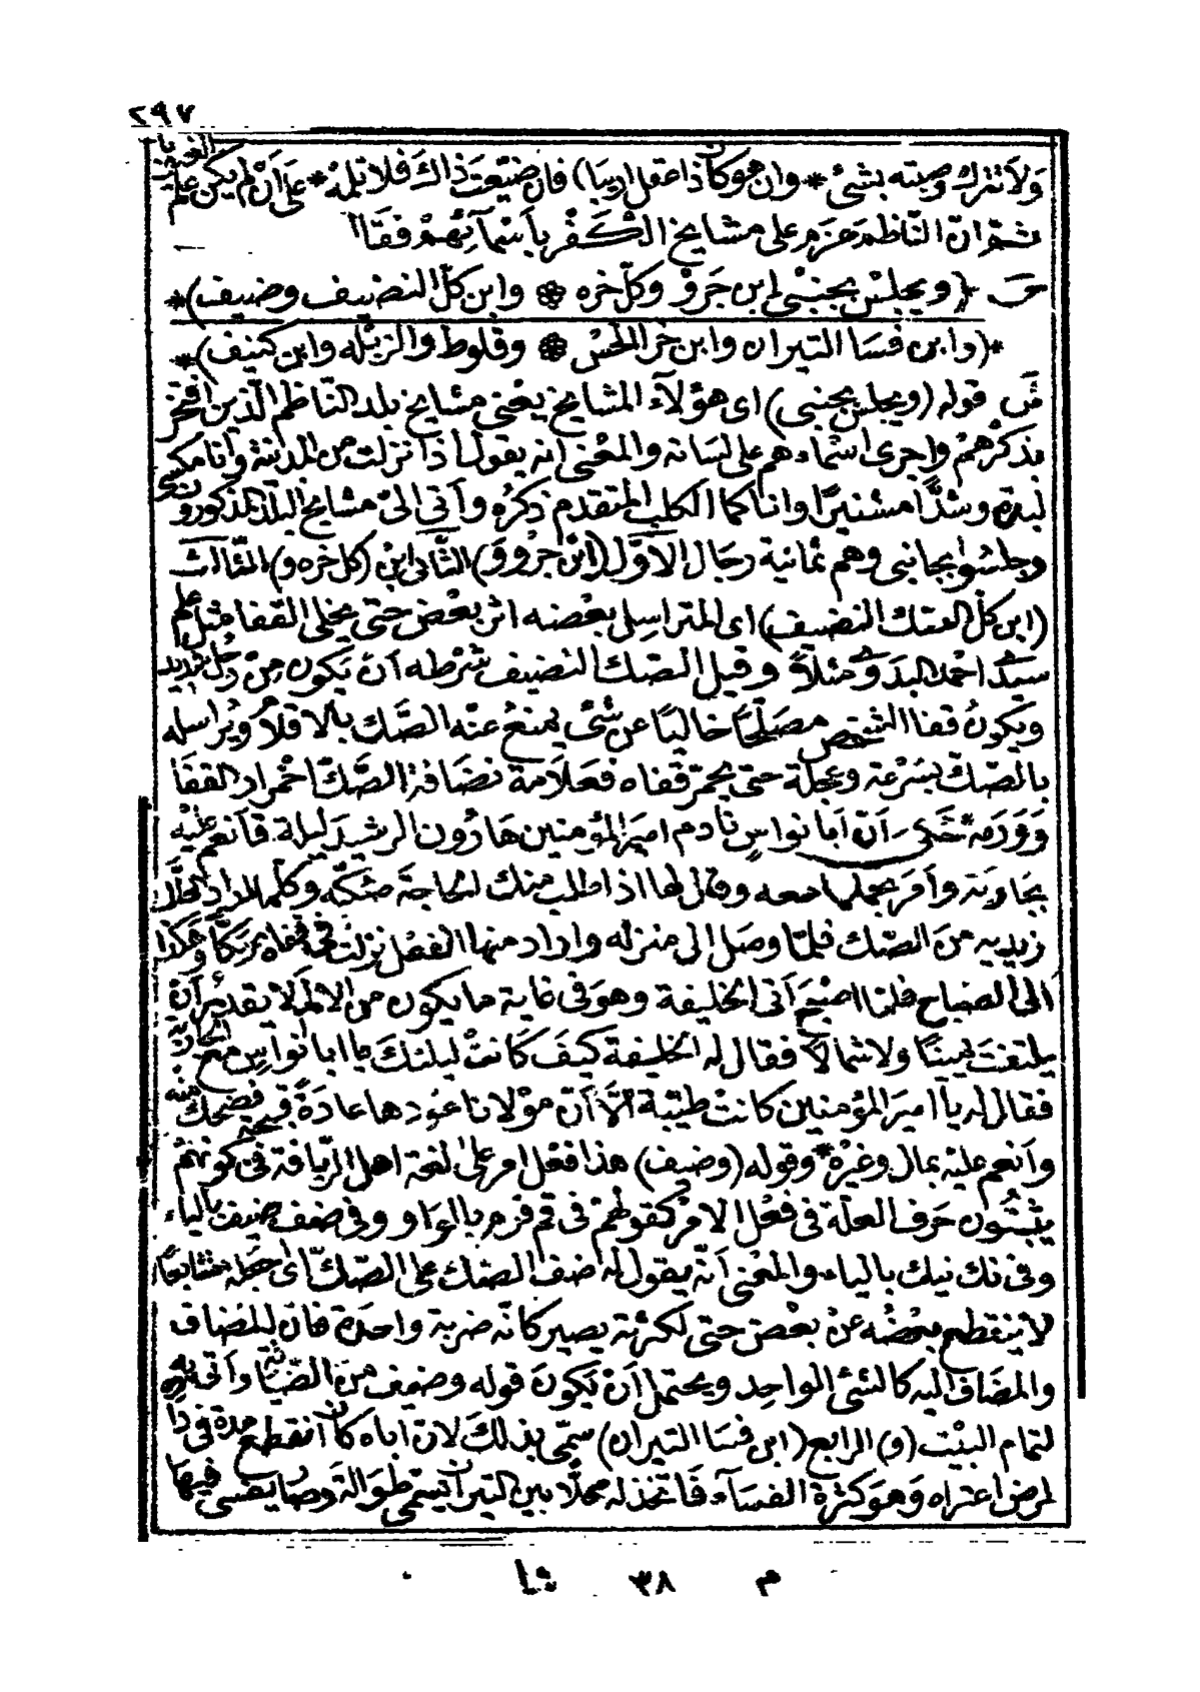 ٢٩٧
ولا تترك وصيته بشئ * وان هو كان ذا عقل اريبا) فان ضيّعت ذاك فلا تلمه * على أن لم يكن علم الغيوبا
ثمّ انّ الناظم عزم على مشايخ الكفر بأسمآئهم فقال
ص *(ويجلس بجنبى ابن جرو وكلّ خره ۞ وابن كلّ النضيف وضيف)*
*(وابن فسا التيران وابن خرا الحس ۞ وقلوط والزبله وابن كنيف)*
ش قوله (ويجلس بجنبى) اى هؤلآء المشايخ يعنى مشايخ بلد الناظم الّذين افتخر
بذكرهم واجرى اسماءهم على لسانه والمعنى انه يقول اذا نزلت من المدينة وانا مكسى
لبدة وشدًّا مشنيرًا وانا كما الكلب المتقدم ذكره وآتى الىّ مشايخ البلد المذكورون
وجلسوا بجانبى وهم ثمانية رجال الأوّل (ابن جرو و) الثّانى ابن (كل خره و) الثّالث
(ابن كلّ الصك النضيف) اى المتراسل بعضه اثر بعض حتى يخلى القفا مثل علم
سيدى احمد البدوى مثلاً وقيل الصك النضيف شرطه أن يكون من رجل شديد
ويكون قفا الشخص مصلّحًا خاليًا عن شئ يمنع عنه الصّك بالاقلام ويراسله
بالصكّ بسرعة وعجلة حتى يحمرّ قفاه فعلامة نضافة الصّكّ احمرار القفا
وورمه حكى أنّ أبا نواسٍ نادم امير المؤمنين هارون الرشيد ليلة فأنعم عليه
بجارية وأمر بحملها معه وقال لها اذا طلب منك الحاجة صكّيه وكلّما اراد الحظّ
زيديه من الصّك فلمّا وصل الى منزله واراد منها الفعل نزلت فى قفاه بركًّا وهكذا
الى الصباح فلمّا اصبح أتى الخليفة وهو فى غاية ما يكون من الالم لا يقدر أن
يلتفت يمينًا ولا شمالاً فقال له الخليفة كيف كانت ليلتك يا ابا نواسٍ مع الجارية
فقال له يآ امير المؤمنين كانت طيّبة الّا أنّ مولانا عوّدها عادةً قبيحة فضحك منه
وأنعم عليه بمال وغيره * وقوله (وضيف) هذا فعل امر على لغة اهل الريافة فى كونهم
يثبتون حرف العلّة فى فعل الامر كقولهم فى قم قوم بالواو وفى ضف ضيف بالياء
وفى نك نيك بالياء والمعنى أنّه يقول له اضف الصك على الصكّ اى اجعله متتابعًا
لا ينقطع بعضه عن بعض حتى لكثرته يصير كانّه ضربة واحدة فانّ المضاف
والمضاف اليه كالشئ الواحد ويحتمل أن يكون قوله وضيف من الضيافة وأتى به
لتمام البيت (و) الرابع (ابن فسا التيران) سمّى بذلك لانّ اباه كان انقطع مدة فى دار
لمرض اعتراه وهو كثرة الفسآء فاتّخذ له محلًّا بين التيران يسمى طوالة وصار يفسى فيها
م ٣٨ شا